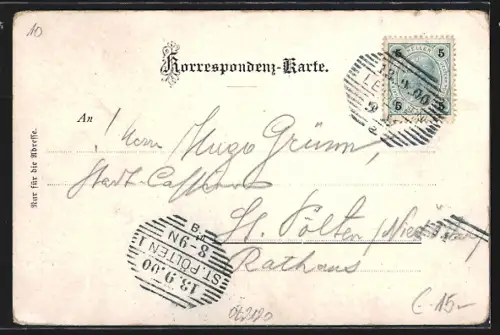 10
Korrespondenz-Karte.
5 5
5 5
13.9.00
An
Herrn Hugo Grünn,
Stadt-Cassier
St. Pölten
Rathaus
Nur für die Adresse.
8-9N
ST. PÖLTEN 1
13.9.00
€ 15.-